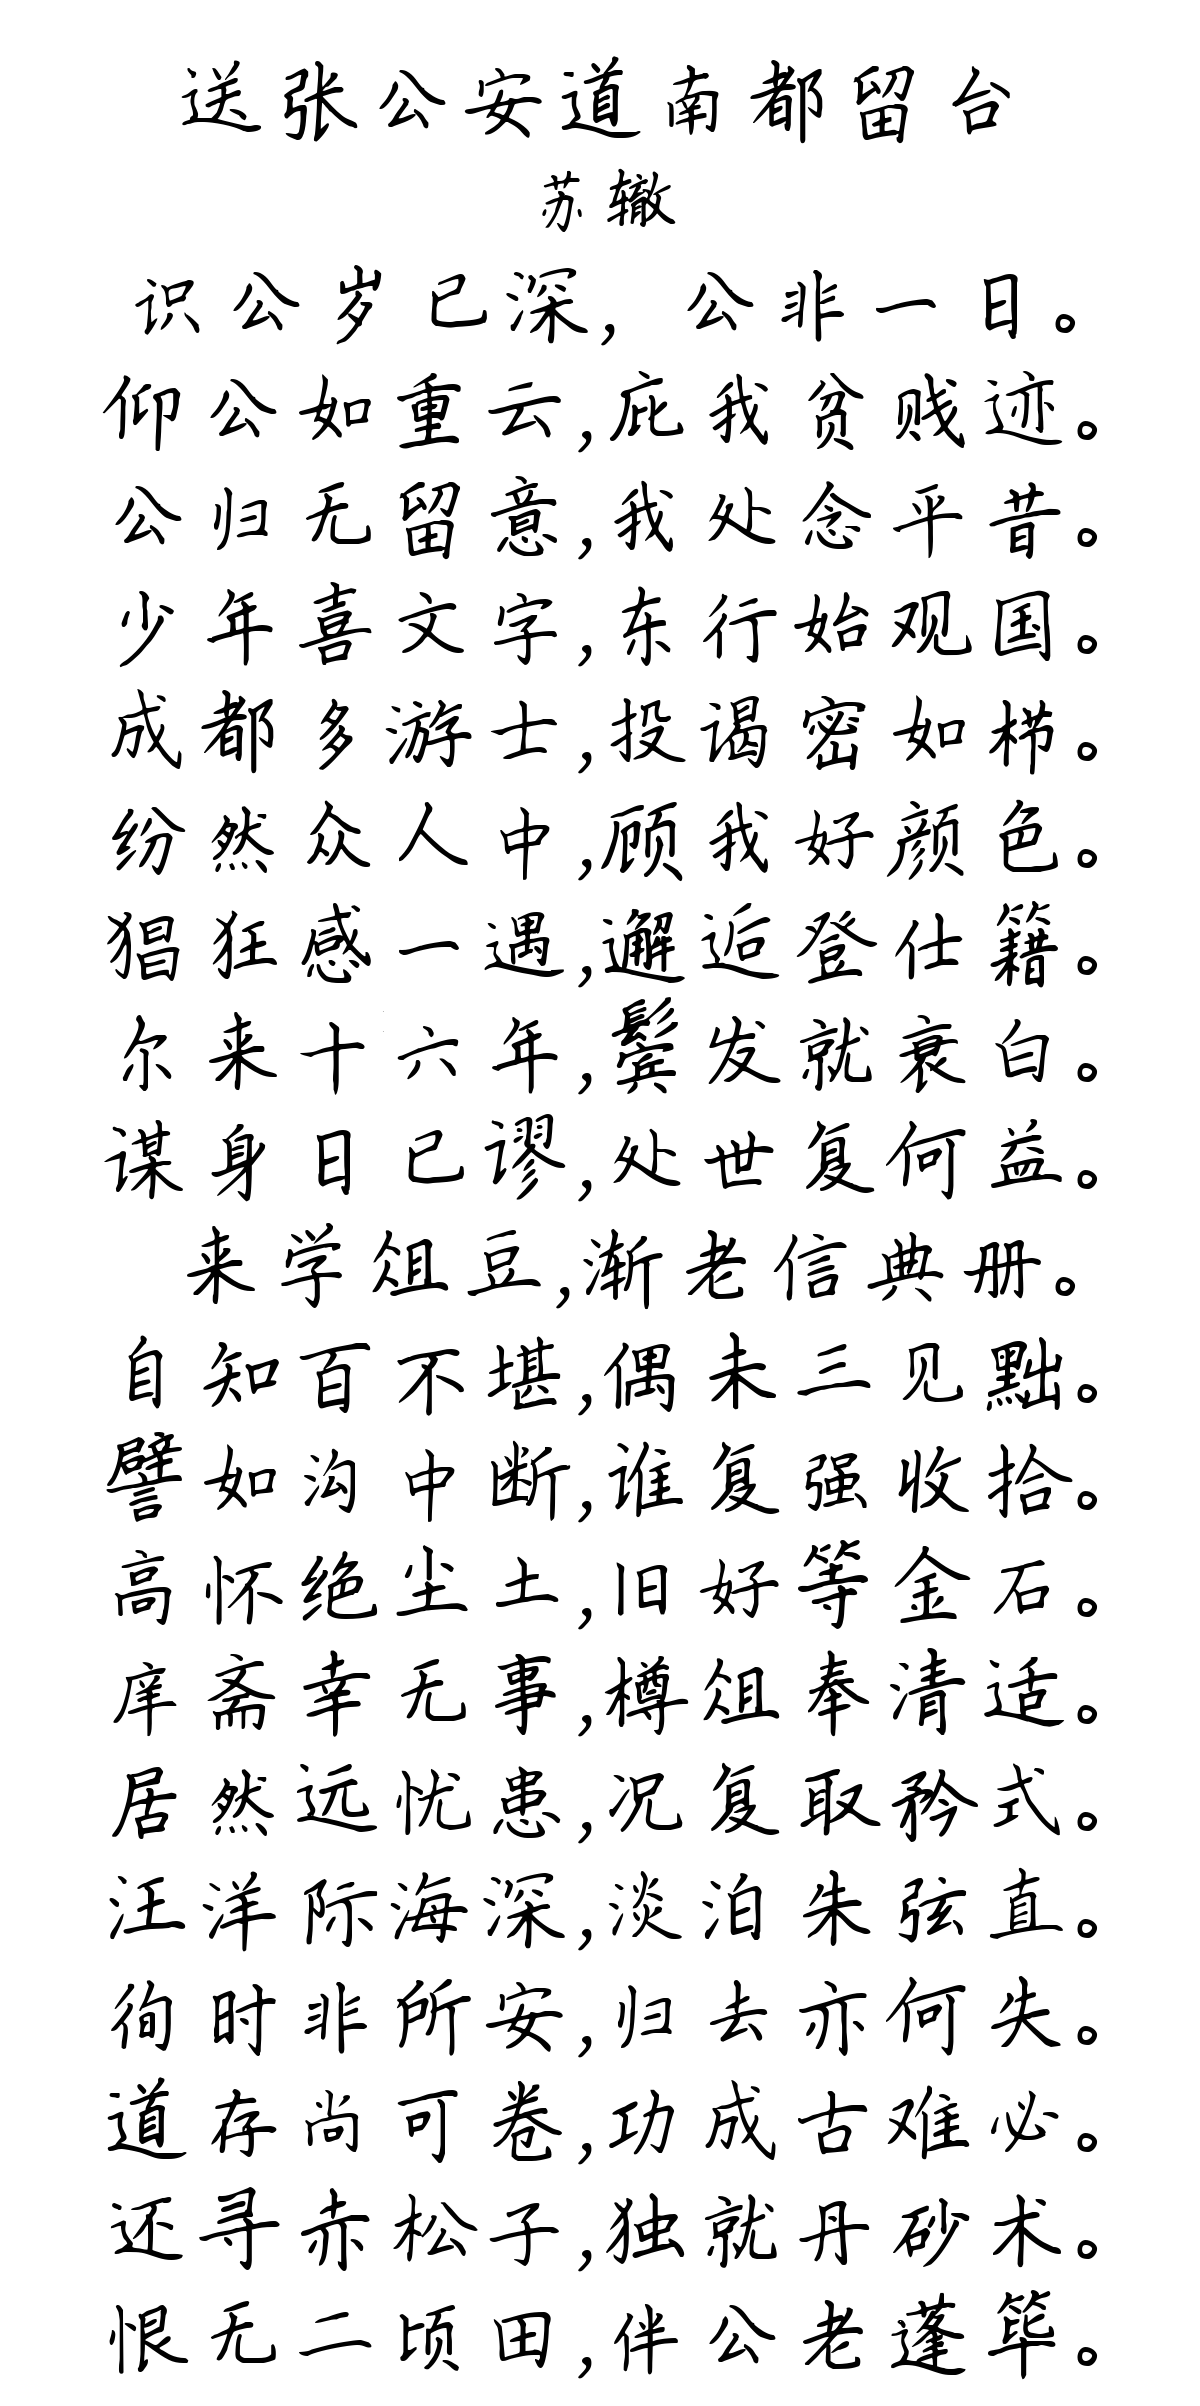 送张公安道南都留台
苏辙
识公岁已深，公非一日。
仰公如重云,庇我贫贱迹。
公归无留意,我处念平昔。
少年喜文字,东行始观国。
成都多游士,投谒密如栉。
纷然众人中,顾我好颜色。
猖狂感一遇,邂逅登仕籍。
尔来十六年,鬓发就衰白。
谋身日已谬,处世复何益。
来学俎豆,渐老信典册。
自知百不堪,偶未三见黜。
譬如沟中断,谁复强收拾。
高怀绝尘土,旧好等金石。
庠斋幸无事,樽俎奉清适。
居然远忧患,况复取矜式。
汪洋际海深,淡泊朱弦直。
徇时非所安,归去亦何失。
道存尚可卷,功成古难必。
还寻赤松子,独就丹砂术。
恨无二顷田,伴公老蓬筚。